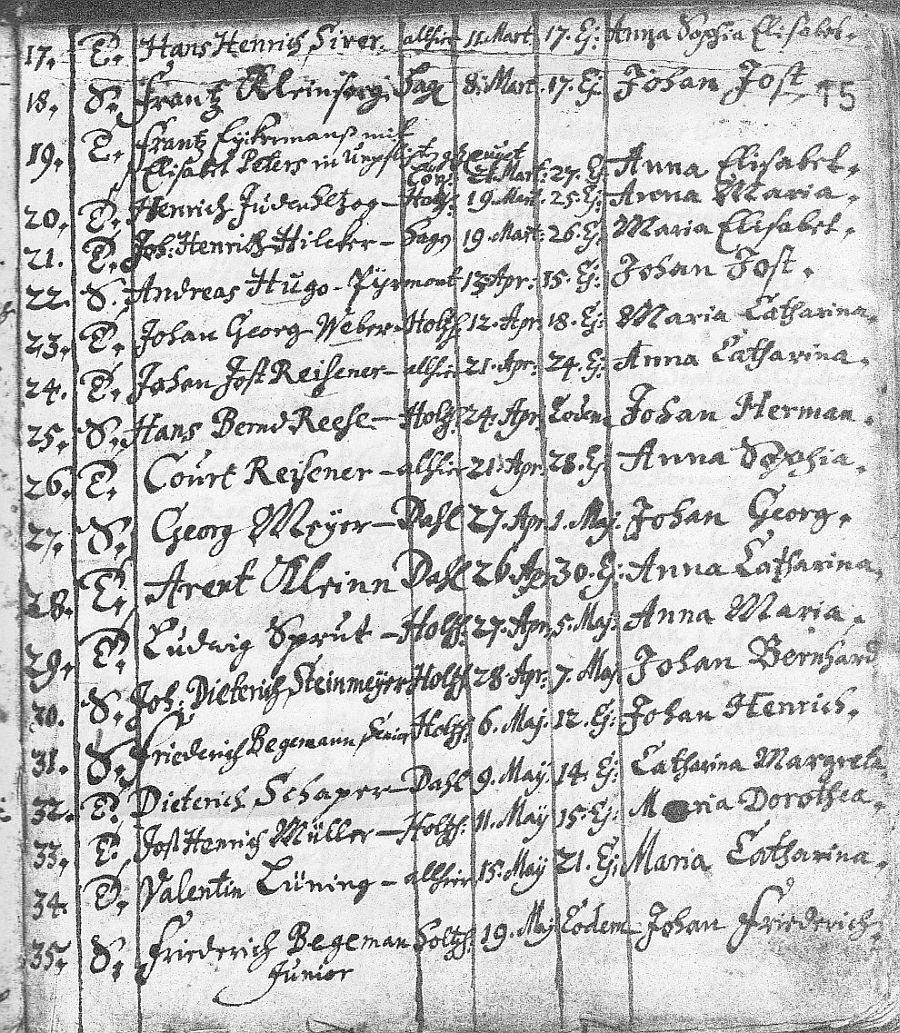 17. T. Hans Henrich Sirer. allhier 11. Mart. 17. Ej: Anna Sophia Elisabet.
18. S. Frantz Kleinsorg. Hag 8. Mart. 17. Ej. Johan Jost. 15
19. T. Frantz Eÿkermans mit
Elisabet Peters in Unpflicht gezeuget Mart: 27. Ej: Anna Elisabet.
20. T. Henrich Judenhertzog - Holtzh: 19 Mart. 25. Ej: Anna Maria.
21. T. Joh: Henrich Hilcker - Hagn 19. Mart: 26. Ej: Maria Elisabet.
22. S. Andreas Hugo - Pÿrmont 13 Apr: 15. Ej: Johan Jost.
23. T. Johan Georg Weber - Holtzh 12. Apr. 18. Ej: Maria Catharina.
24. T. Johan Jost Reisener - allhier 21. Apr: 24. Ej: Anna Catharina.
25. S. Hans Bernd Reese - Holtzh: 24. Apr. Eodem Johan Herman.
26. T. Court Reisener - allhier 21. Apr. 28. Ej Anna Sophia.
27. S. Georg Meÿer - Dahl 27. Apr 1. Maj. Johan Georg.
28. T. Arent Kleinn Dahl 26 Apr 30. Ej: Anna Catharina.
29. T. Ludwig Sprut - Holtzh. 27. Apr. 5. Maj. Anna Maria.
30. S. Joh: Dieterich Steinmeÿer Holtzh 28. Apr: 7. Maj. Johan Bernhard
31. S. Friederich Begemann Senior Holtzh: 6. Maj. 12. Ej: Johan Henrich.
32. T. Dieterich Schaper - Dahl 9. Maÿ 14. Ej: Catharina Margreta.
33. T. Jost Henrich Müller - Holtzh: 11. Maÿ 15. Ej: Maria Dorothea.
34. T. Valentin Lüning - allhier 15. Maÿ 21. Ej: Maria Catharina.
35. S. Friederich Begeman Holtzh: 19. Maj Eodem Johan Friederich.
Junior